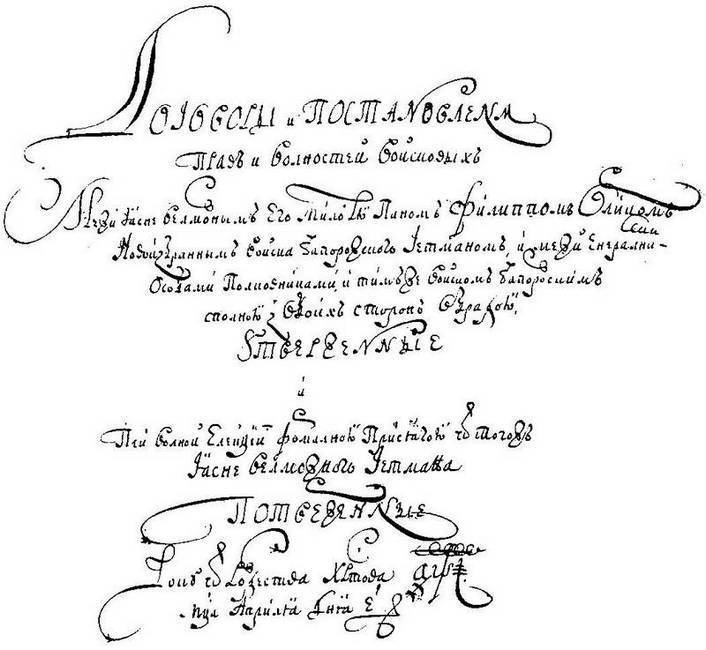 Договоры и ПОСТАНОВЛЕНѦ
Правъ и волностей Войсковыхъ
Межи Ясне велможнымъ Его Милостю Паномъ Филиппомъ Орликомъ
Новоизбраннымъ войска Запорожского Гетманомъ, и межи Енералними
Особами Полковниками и тимъже Войскомъ Запорожскимъ
сполною з обоихъ сторонъ обрадою
УТВЕРЖЕННЫЕ
и
При волной Елекцїи формалною Присягою ѿ тогожъ
Ясне велможного Гетмана
ПОТВЕРЖЕННЫЕ
Року ѿ Рожества Хр҃това ҂аѱі
М҃ца Априля Дня Е҃